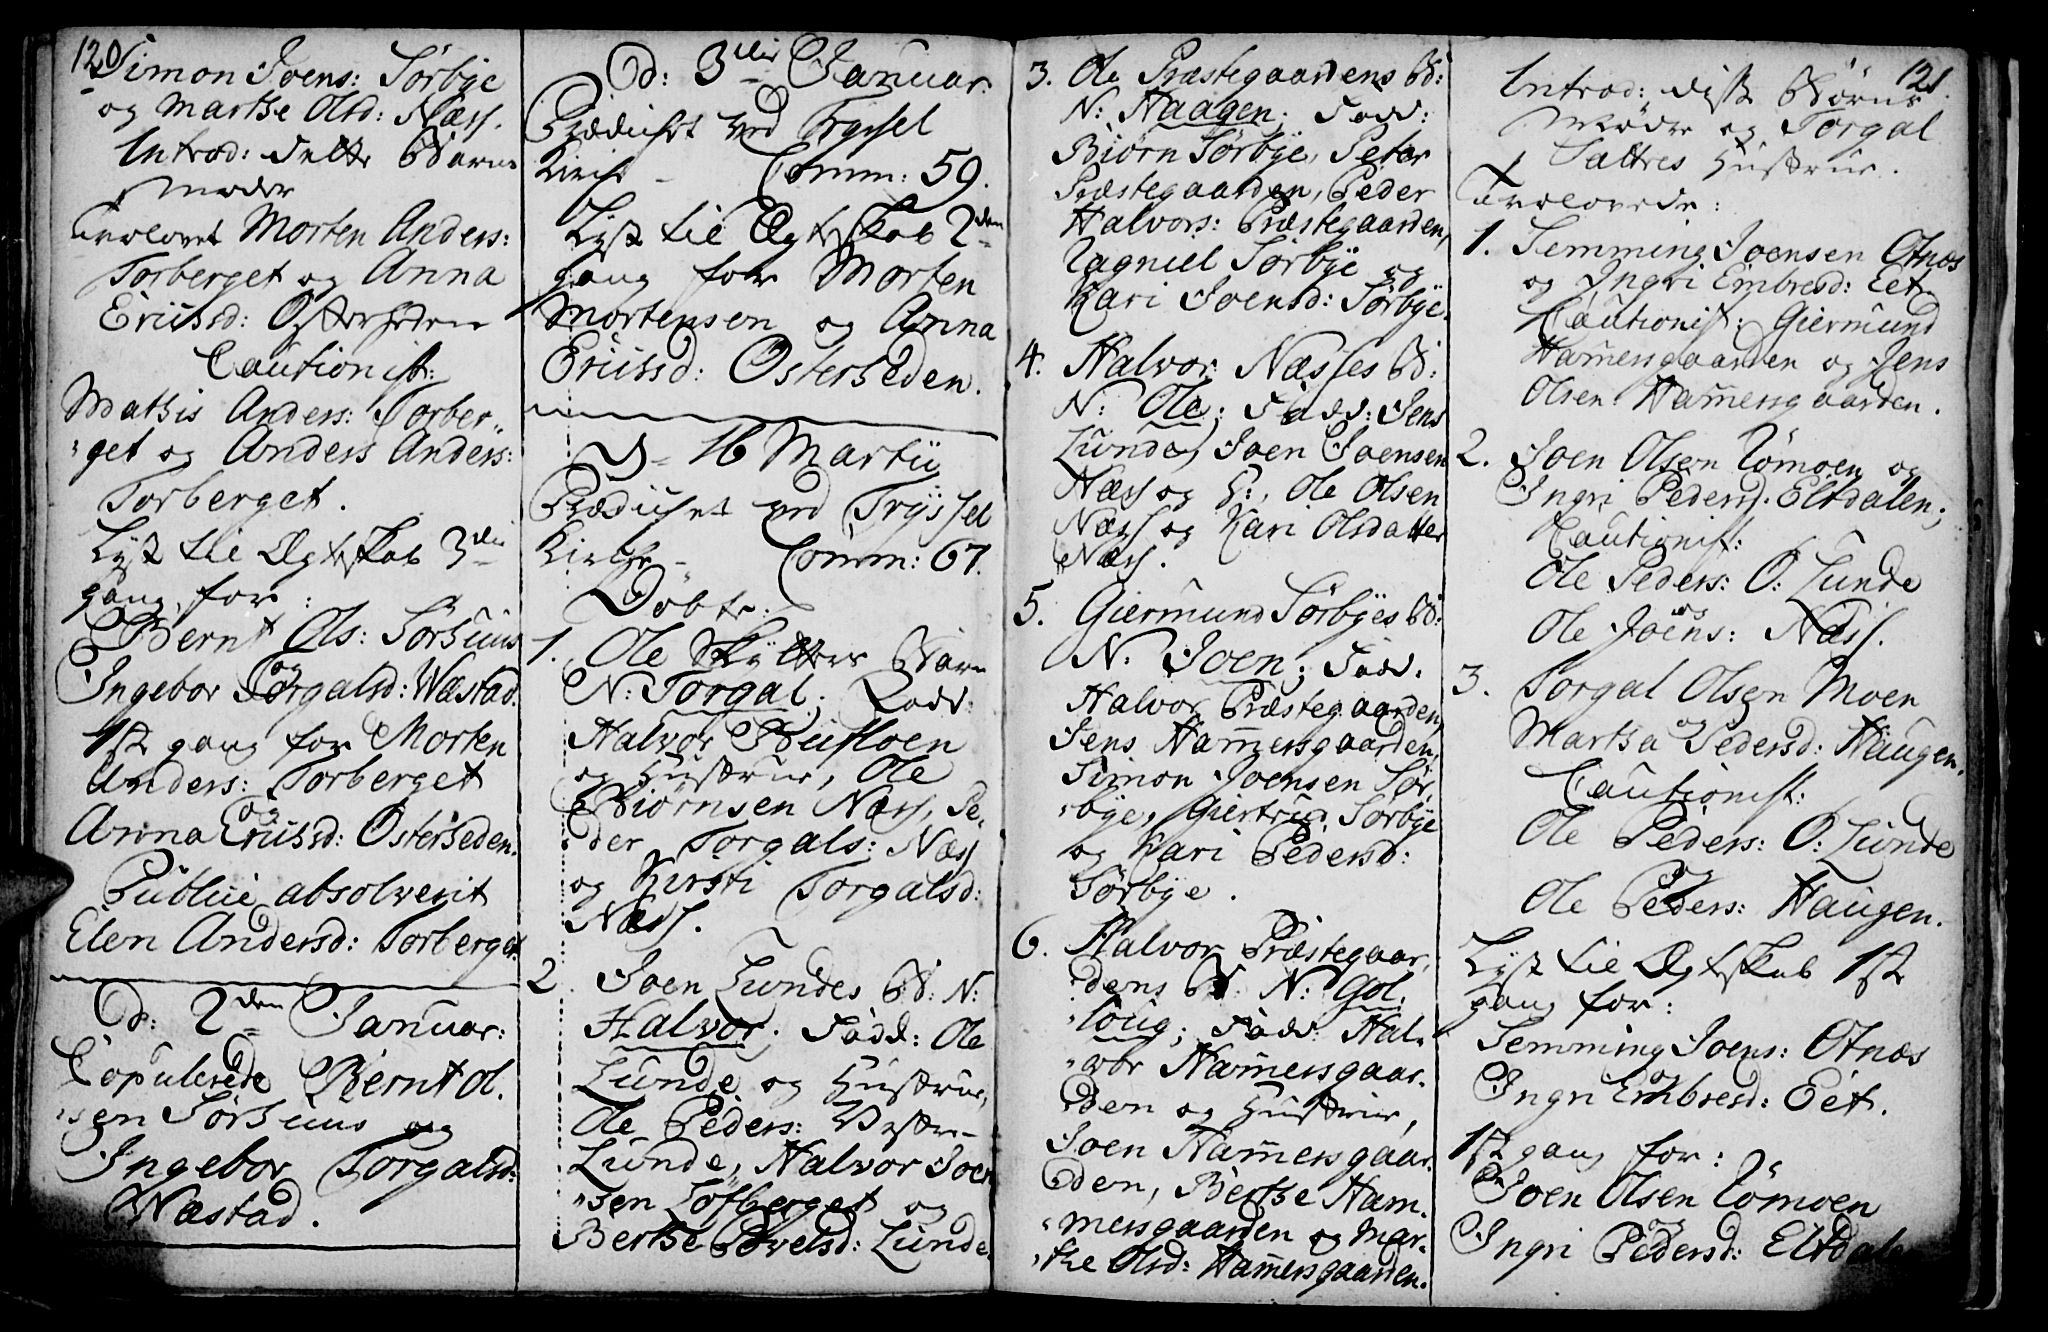 120
Simon Joens: Sørbye
og Marthe Olsd: Næss.
Introd: dette Barns
Moder
Trolovet Morten Anders:
Torberget og Anna
Eriksd: Østerheden
Cautionist:
Mathis Anders: Torber-
get og Anders Anders:
Torberget.
Lyst til Ægteskab 3die
gang for:
Bernt Ols: Sørhuus
og
Ingebor Torgalsd: Wæstad.
1st gang for Morten
Anders: Torberget
og
Anna Eriksd: Østerheden.
Publice absolverit
Elen Andersd: Torberget.
D: 2den Januar:
Copulerede Bernt Ol-
sen Sørhuus og
Ingebor Torgalsd:
Wæstad.
D: 3die Januar.
Prædichet ved Tryssel
Kirche - Comm: 59.
Lyst til Ægteskab 2den
gang for Morten
Mortensen og Anna
Eriksd: Østerheden.
D= 16 Martij
Prædichet ved Tryssel
Kirche - Comm: 67.
Døbte:
1. Ole Skytters Barn
N: Torgal; Fadd:
Halvor
og Hustrue, Ole
Biørnsen Næss, Pe-
der Torgals: Næss
og Kirsti Torgalsd:
Næss.
2. Joen Lundes B: N:
Halvor. Fadd: Ole
Lunde og Hustrue,
Ole Peders: Vestre-
Lunde, Halvor Joen
sen Løfberget og
Berthe Povelsd: Lunde.
3. Ole Præstegaardens B:
N: Haagen; Fadd:
Biørn Sørbye, Peter
Præstegaarden, Peder
Halvors: Præstegaarden,
Ragniel Sørbye og
Kari Joensd: Sørbye.
4. Halvor Næsses B:
N: Ole; Fadd: Jens
Lunde, Joen Joensen
Næss og H:, Ole Olsen
Næss og Kari Olsdatter
Næss.
5. Giermund Sørbyes B:
N: Joen; Fadd.
Halvor Præstegaarden,
Jens Hamersgaarden,
Simon Joensen Sør-
bye, Giertrud Sørbye
og Kari Pedersd:
Sørbye.
6. Halvor Præstegaar-
dens B: N: Gol-
loug; Fadd: Hal-
vor Hamersgaar-
den og Hustrue,
Joen Hamersgaar-
den, Berthe Ham-
mersgaarden og Mar-
the Olsd: Hamersgaarden.
121.
Introd: disse Børns
Mødre og Torgal
Sættres Hustrue.
Trolovede:
1. Semming Joensen Otnæs
og Ingri Embresd: Eet
Cautionist: Giermund
Hamersgaarden og Jens
Olsen Hamersgaarden.
2. Joen Olsen Rømoen og
Ingri Pedersd. Eltdalen;
Cautionist:
Ole Peders: O: Lunde
og
Ole Joens: Næss.
3. Torgal Olsen Moen
og
Martha Pedersd: Haugen.
Cautionist:
Ole Peders: O: Lunde
og
Ole Peders: Haugen.
Lyst til Ægteskab 1st
gang for:
Semming Joens: Otnæs
og
Ingri Embresd: Eet.
1st gang for:
Joen Olsen Rømoen
og
Ingri Pedersd: Eltdalen